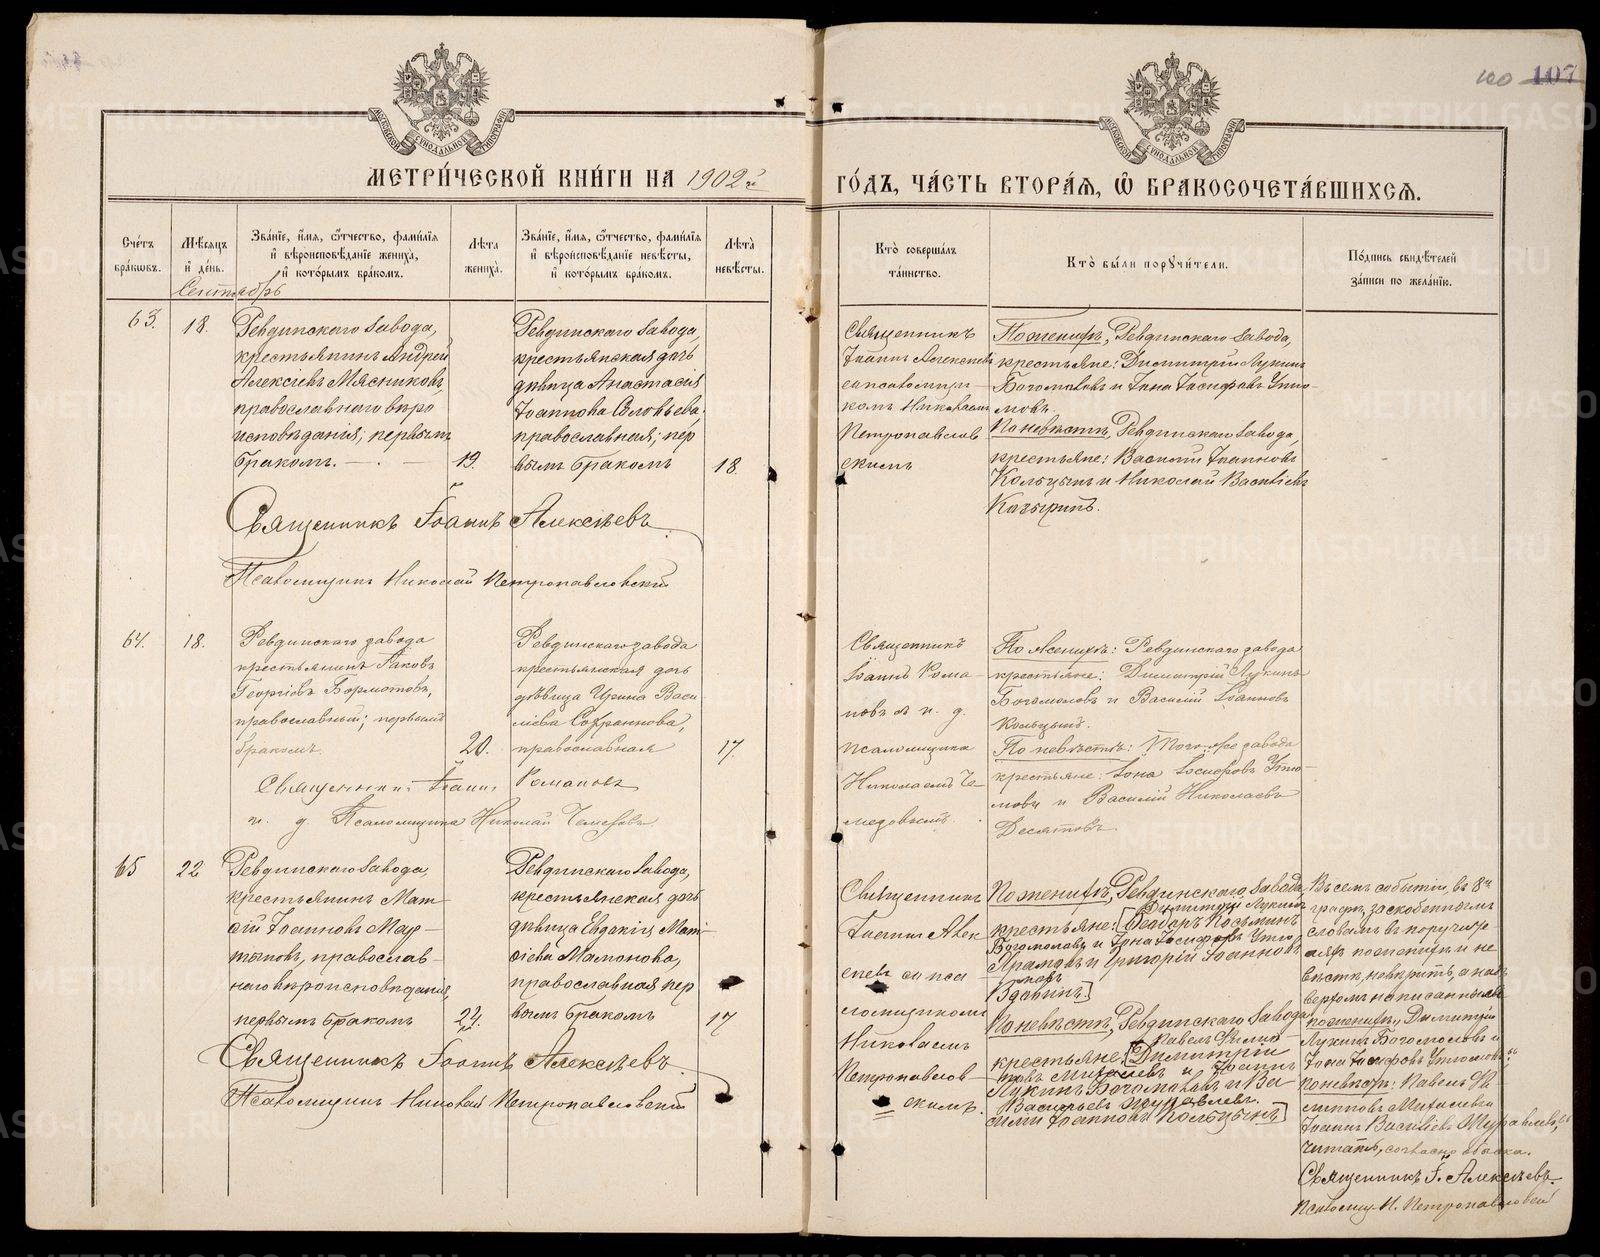 100 107
МОСКОВСКОЙ СѴНОДАЛЬНОЙ ТИПОГРАФІИ
МОСКОВСКОЙ СѴНОДАЛЬНОЙ ТИПОГРАФІИ
МЕТРИ́ЧЕСКОЙ КНИ́ГИ НА 1902й
ГО́ДЪ, ЧА́СТЬ ВТОРА́Ѧ, Ѽ БРАКОСОЧЕТА́ВШИХСѦ.
Сче́тъ бра́кѡвъ.
Мѣ́сѧцъ и҆ де́нь.
Зва́нїе, и҆́мѧ, ѻ҆́тчество, фами́лїѧ
и҆ вѣроисповѣ́данїе жениха̀,
и҆ кото́рымъ бра́комъ.
Лѣ́та жениха̀.
Зва́нїе, и҆́мѧ, ѻ҆́тчество, фами́лїѧ
и҆ вѣроисповѣ́данїе невѣ́сты,
и҆ кото́рымъ бра́комъ.
Лѣ́та невѣ́сты.
Кто̀ соверша́лъ
та́инство.
Кто̀ бы́ли порꙋчи́тели.
По́дпись свидѣ́телей
за́писи по жела́нїю.
Сентябрь
63.
18.
Ревдинскаго завода,
крестьянинъ Андрей
Алексіевъ Мясниковъ,
православнаго вѣро
исповѣданія; первымъ
бракомъ.
19.
Ревдинскаго завода
крестьянская дочь
дѣвица Анастасія
Іоаннова Соловьева.
православная; пер
вымъ бракомъ
18.
Священникъ
Іоаннъ Алексѣевъ
съ псаломщи-
комъ Николаемъ
Петропавлов
скимъ
По женихѣ, Ревдинскаго завода,
крестьяне: Димитрій Лукинъ
Богомоловъ и Іона Іосифовъ Утю-
мовъ.
По невѣстѣ, Ревдинскаго завода,
крестьяне: Василій Іоанновъ
Кольцынъ и Николай Васильевъ
Священникъ Іоаннъ Алексѣевъ
Псаломщикъ Николай Петропавловскій
64.
18.
Ревдинскаго завода
крестьянинъ Іаковъ
Георгіевъ Бормотовъ,
православный; первымъ
бракомъ.
20.
Ревдинскаго завода
крестьянская дочь
дѣвица Ирина Васи
ліева Софраннова,
православная
17.
Священникъ
Іоаннъ Рома-
новъ съ и. д.
псаломщика
Николаемъ Че-
медовымъ.
По женихѣ: Ревдинскаго завода
крестьяне: Димитрій Лукинъ
Богомоловъ и Василій Іоанновъ
Кольцынъ.
По невѣстѣ: Того-же завода
крестьяне: Іона Іосифовъ Утю-
мовъ и Василій Николаевъ
Десятовъ.
Священникъ Іоаннъ Романовъ
и. д. Псаломщика Николай
65
22
Ревдинскаго завода,
крестьянинъ Мат-
ѳій Іоанновъ Мар-
тыновъ, православ-
наго вѣроисповѣданія,
первымъ бракомъ
22.
Ревдинскаго завода,
крестьянская дочь
дѣвица Евдокія Мат-
ѳіева Мамонова,
православная пер
вымъ бракомъ
17
Священникъ
Іоаннъ Алек
сѣевъ съ пса
ломщикомъ
Николаемъ
Петропавлов-
скимъ.
По женихѣ, Ревдинскаго завода
Димитрій Лукинъ
крестьяне: [Ѳеодоръ Косьминъ
Богомоловъ и Іона Іосифовъ Утю
и Григорій Іоанновъ
мовъ
По невѣстѣ, Ревдинскаго завода
Павелъ Филип
крестьяне: [Димитрій
повъ и Іоаннъ
Лукинъ Богомоловъ и Ва
Васильевъ Журавлевъ.
силій Іоанновъ Кольцынъ]
Въ семъ событіи, въ 8й
графѣ, заскобеннымъ
словамъ въ поручите
ляхъ по женихѣ и не
вѣстѣ, не вѣрить, а на
верхомъ написанныя
по женихѣ, Димитрій
Лукинъ Богомоловъ и
Іона Іосифовъ Утюмовъ;
по невѣстѣ: Павелъ Фи
липповъ
Іоаннъ Васильевъ Журавлевъ,
читать, согласно обыска.
Священникъ І. Алексѣевъ.
Псаломщ. Н. Петропавловскій
Священникъ Іоаннъ Алексѣевъ.
Псаломщикъ Николай Петропавловскій
METRIKI.GASO-URAL.RU